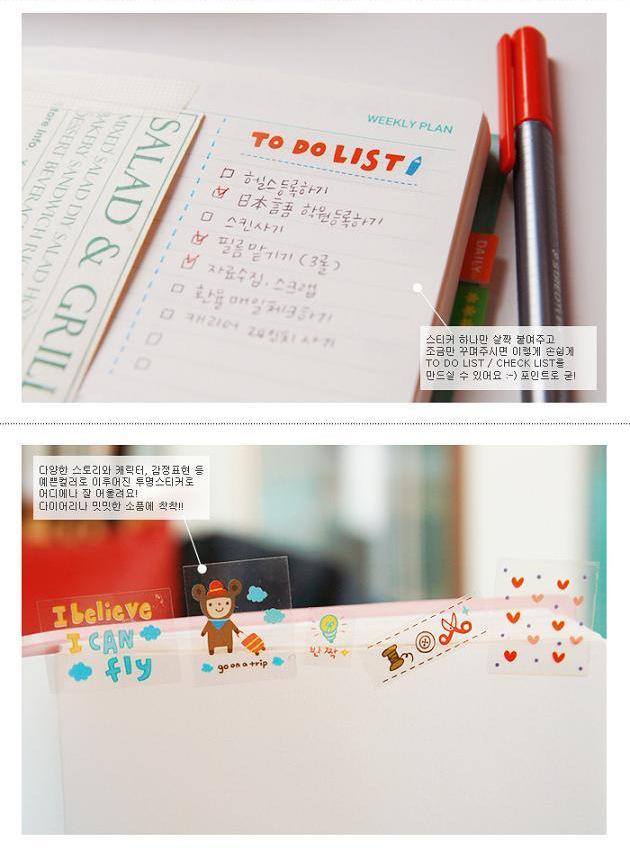 WEEKLY PLAN
TO DO LIST
헬스등록하기
日本語 학원등록하기
스킨사기
필름맡기기 (3롤)
자료수집, 스크랩
환율매일체크하기
캐리어 24인치 사기
SALAD & GRILL
MIXED SALAD DIY SALAD
BAKERY SANDWICH
DESSERT BEVERAGE
Store Info
DAILY
STAEDTLER
스티커 하나만 살짝 붙여주고
조금만 꾸며주시면 이렇게 손쉽게
TO DO LIST / CHECK LIST를
만드실 수 있어요 :-) 포인트로 굳!
다양한 스토리와 캐릭터, 감정표현 등
예쁜컬러로 이루어진 투명스티커로
어디에나 잘 어울려요!
다이어리나 밋밋한 소품에 착착!!
I believe
I CAN
fly
go on a trip
반짝